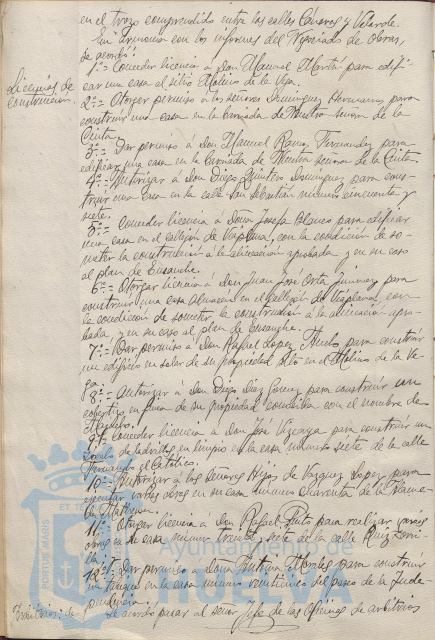 en el trozo comprendido entre las calles Cánovas y Velarde.
En armonía con los informes del Negociado de Obras,
se acordó:
Licencias de
construcción.
1º = Conceder licencia a Don Manuel Martín para edifi-
car una casa al sitio Molino de la Vega.
2º = Otorgar permiso a los señores Domínguez Hermanos para
construir una casa en la Barriada de Nuestra Señora de la
Cinta.
3º = Dar permiso a don Manuel Ramos Fernández para
edificar una casa en la Barriada de Nuestra Señora de la Cinta.
4º = Autorizar a don Diego Quintero Domínguez para cons-
truir una casa en la calle San Sebastián número cincuenta y
siete.
5º = Conceder licencia a Doña Josefa Blanco para edificar
una casa en el Callejón de Viaplana, con la condición de so-
meter la construcción a la alineación aprobada y en su caso
al plan de Ensanche.
6º = Otorgar licencia a don Juan José Orta Jiménez para
construir una casa almacén en el Callejón de Viaplana, con
la condición de someter la construcción a la alineación apro-
bada, y en su caso al plan de Ensanche.
7º = Dar permiso a don Rafael López para construir
un edificio en solar de su propiedad sito en el Molino de la Ve-
ga.
8º = Autorizar a don Diego Díaz Gómez para construir un
cobertizo en finca de su propiedad conocida con el nombre de
9º = Conceder licencia a don José Vizcaya para construir un
zócalo de ladrillo en limpio en la casa número siete de la calle
Fernando el Católico.
10º = Autorizar a los Señores Hijos de Vázquez López para
ejecutar varias obras en su casa número cuarenta de la
11º = Otorgar licencia a don Rafael Pinto para realizar varias
obras en la casa número treinta y siete de la calle Ruiz Zorri-
lla.
12º = Dar permiso a Doña Morales para construir
un tanque en la casa número veinticinco del paseo de la Inde-
pendencia.
Se acordó pasar al señor Jefe de las Oficinas de arbitrios
Ayuntamiento de
HUELVA
PORTUS MARIS
ET TE